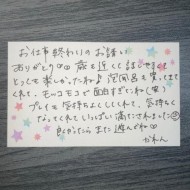 お仕事終わりのお誘い
ありがとう♡♡ 森を近くして話せて
とっても楽しかったね♪ 泡風呂も使ってきて
くれて、モコモコで面白すぎたね(笑)
プレイも気持ちよしくしてくれて、気持ちく
なってくれていっぱい
良かったら また遊んでね♡
かれん